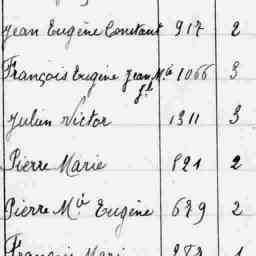 Jean Eugène Constant 917 2
François Eugène Jean M.ie 1066 3
Julien Victor 1311 3
Pierre Marie 821 2
Pierre M.ie Eugène 679 2
François Marie 1